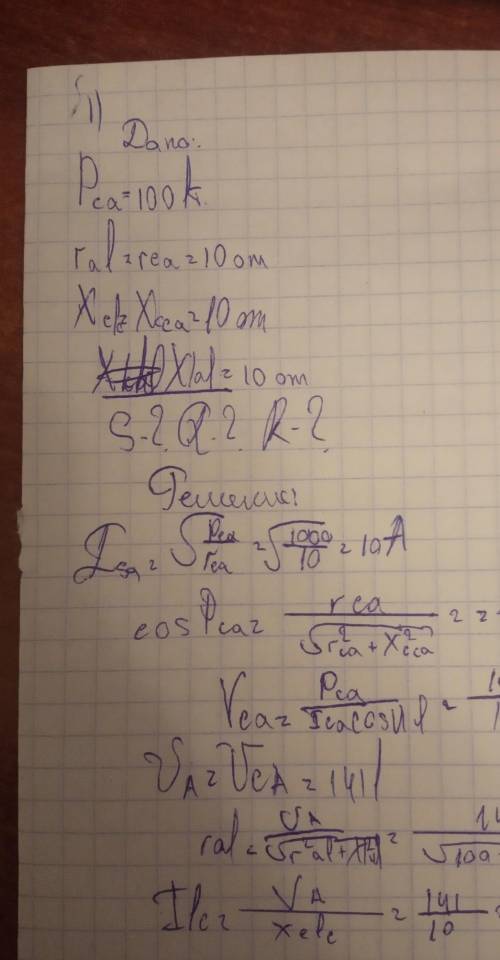 1)
Дано:
Pca = 100 k.
ral = rca = 10 om
Xclz Xcca = 10 om
Xlal = 10 om
S-? Q-? R-?
Решение:
Ica = √Pca/rca = √1000/10 = 10 A
cos Pca = rca/√r²ca + X²cca =
Vca = Pca/Ica cos
VA = VCA = 141
ral = VA/√r²al + X²al =
Ilc = VA/xclc = 141/10 =